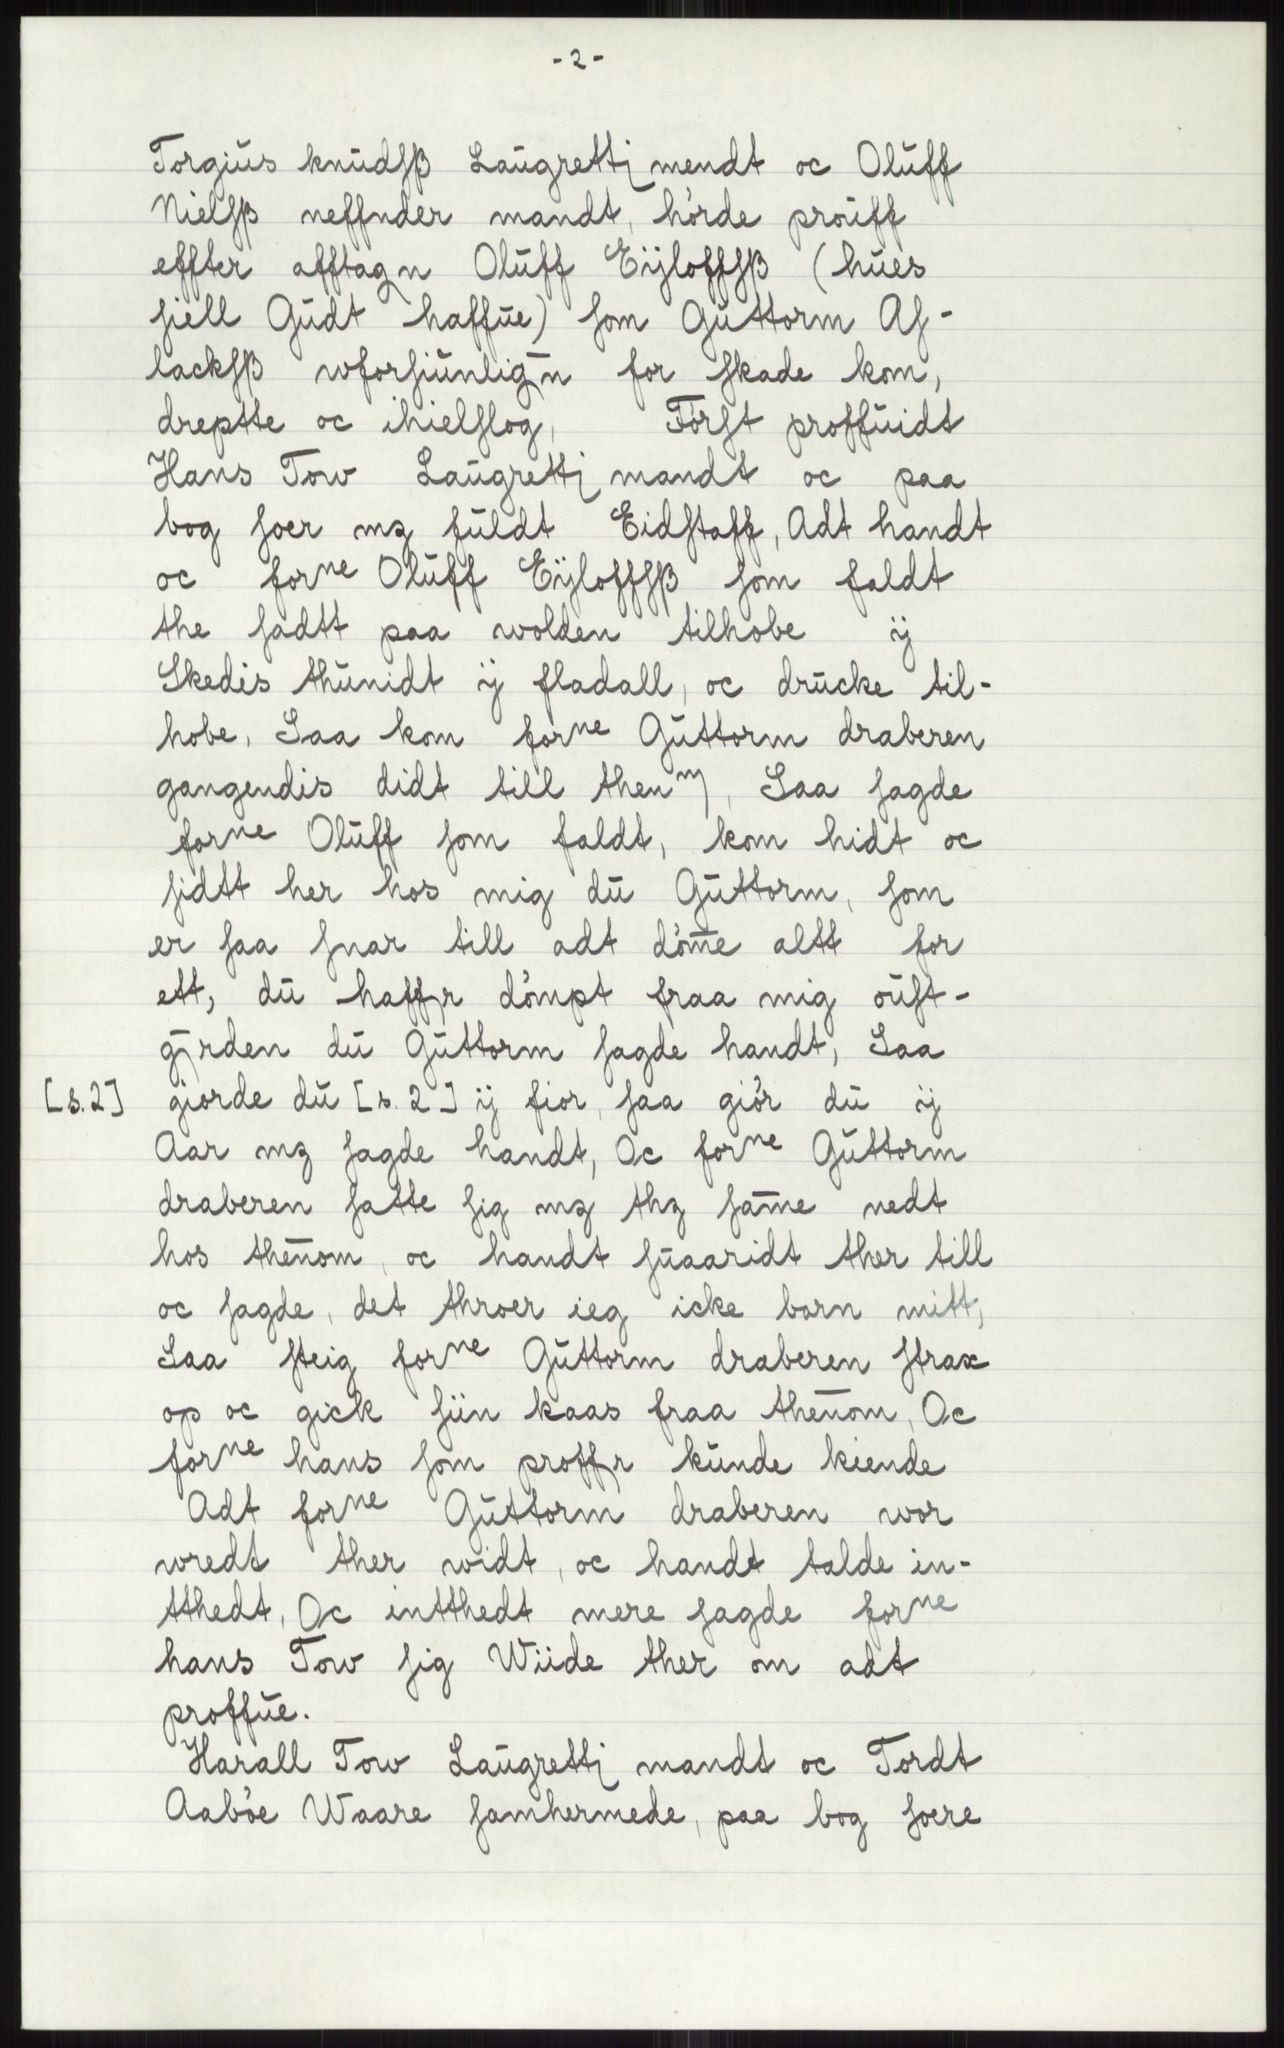 - 2 -
Torgiūs knūdsß Laūgrettj mendt oc Olūff
Nielsß neffnder mandt, hórde proūff
effter afftagn Olūff Eÿloffsß (hūes
siell Gūdt haffūe) som Gūttorm As-
lacksß wforsiūnlign for skade kom,
dreptte oc ihielslog, Fórst proffūidt
Hans Tow Laūgrettj mandt oc paa
bog soer mz fūldt Eidstaff, Adt handt
oc forne Olūff Eÿloffsß som faldt
the sadtt paa wolden tilhobe ÿ
Skedis thūnidt ÿ fladall, oc drūcke til-
hobe, Saa kom forne Gūttorm draberen
gangendis didt till thenm, Saa sagde
forne Olūff som faldt, kom hidt oc
sidtt her hos mig dū Gūttorm, som
er saa snar till adt dóm̄e altt for
ett, dū haffr dómpt fraa mig oūst-
gjrden dū Gūttorm sagde handt, Saa
[s.2] giorde dū [s. 2] ÿ fior, saa giór dū ÿ
Aar mz sagde handt, Oc forne Gūttorm
draberen satte sig mz thz sam̄e nedt
hos then̄om, oc handt sūaaridt ther till
oc sagde, det throer ieg icke barn mitt,
Saa steig forne Gūttorm draberen strax
op oc gick siin kaas fraa then̄om, Oc
forne hans som proffr kūnde kiende
Adt forne Gūttorm draberen wor
wredt ther widt, oc handt talde in-
tthedt, Oc intthedt mere sagde forne
hans Tow sig Wiide ther om adt
proffūe.
Harall Tow Laūgrettj mandt oc Tordt
Aabóe Waare samhermede, paa bog soere